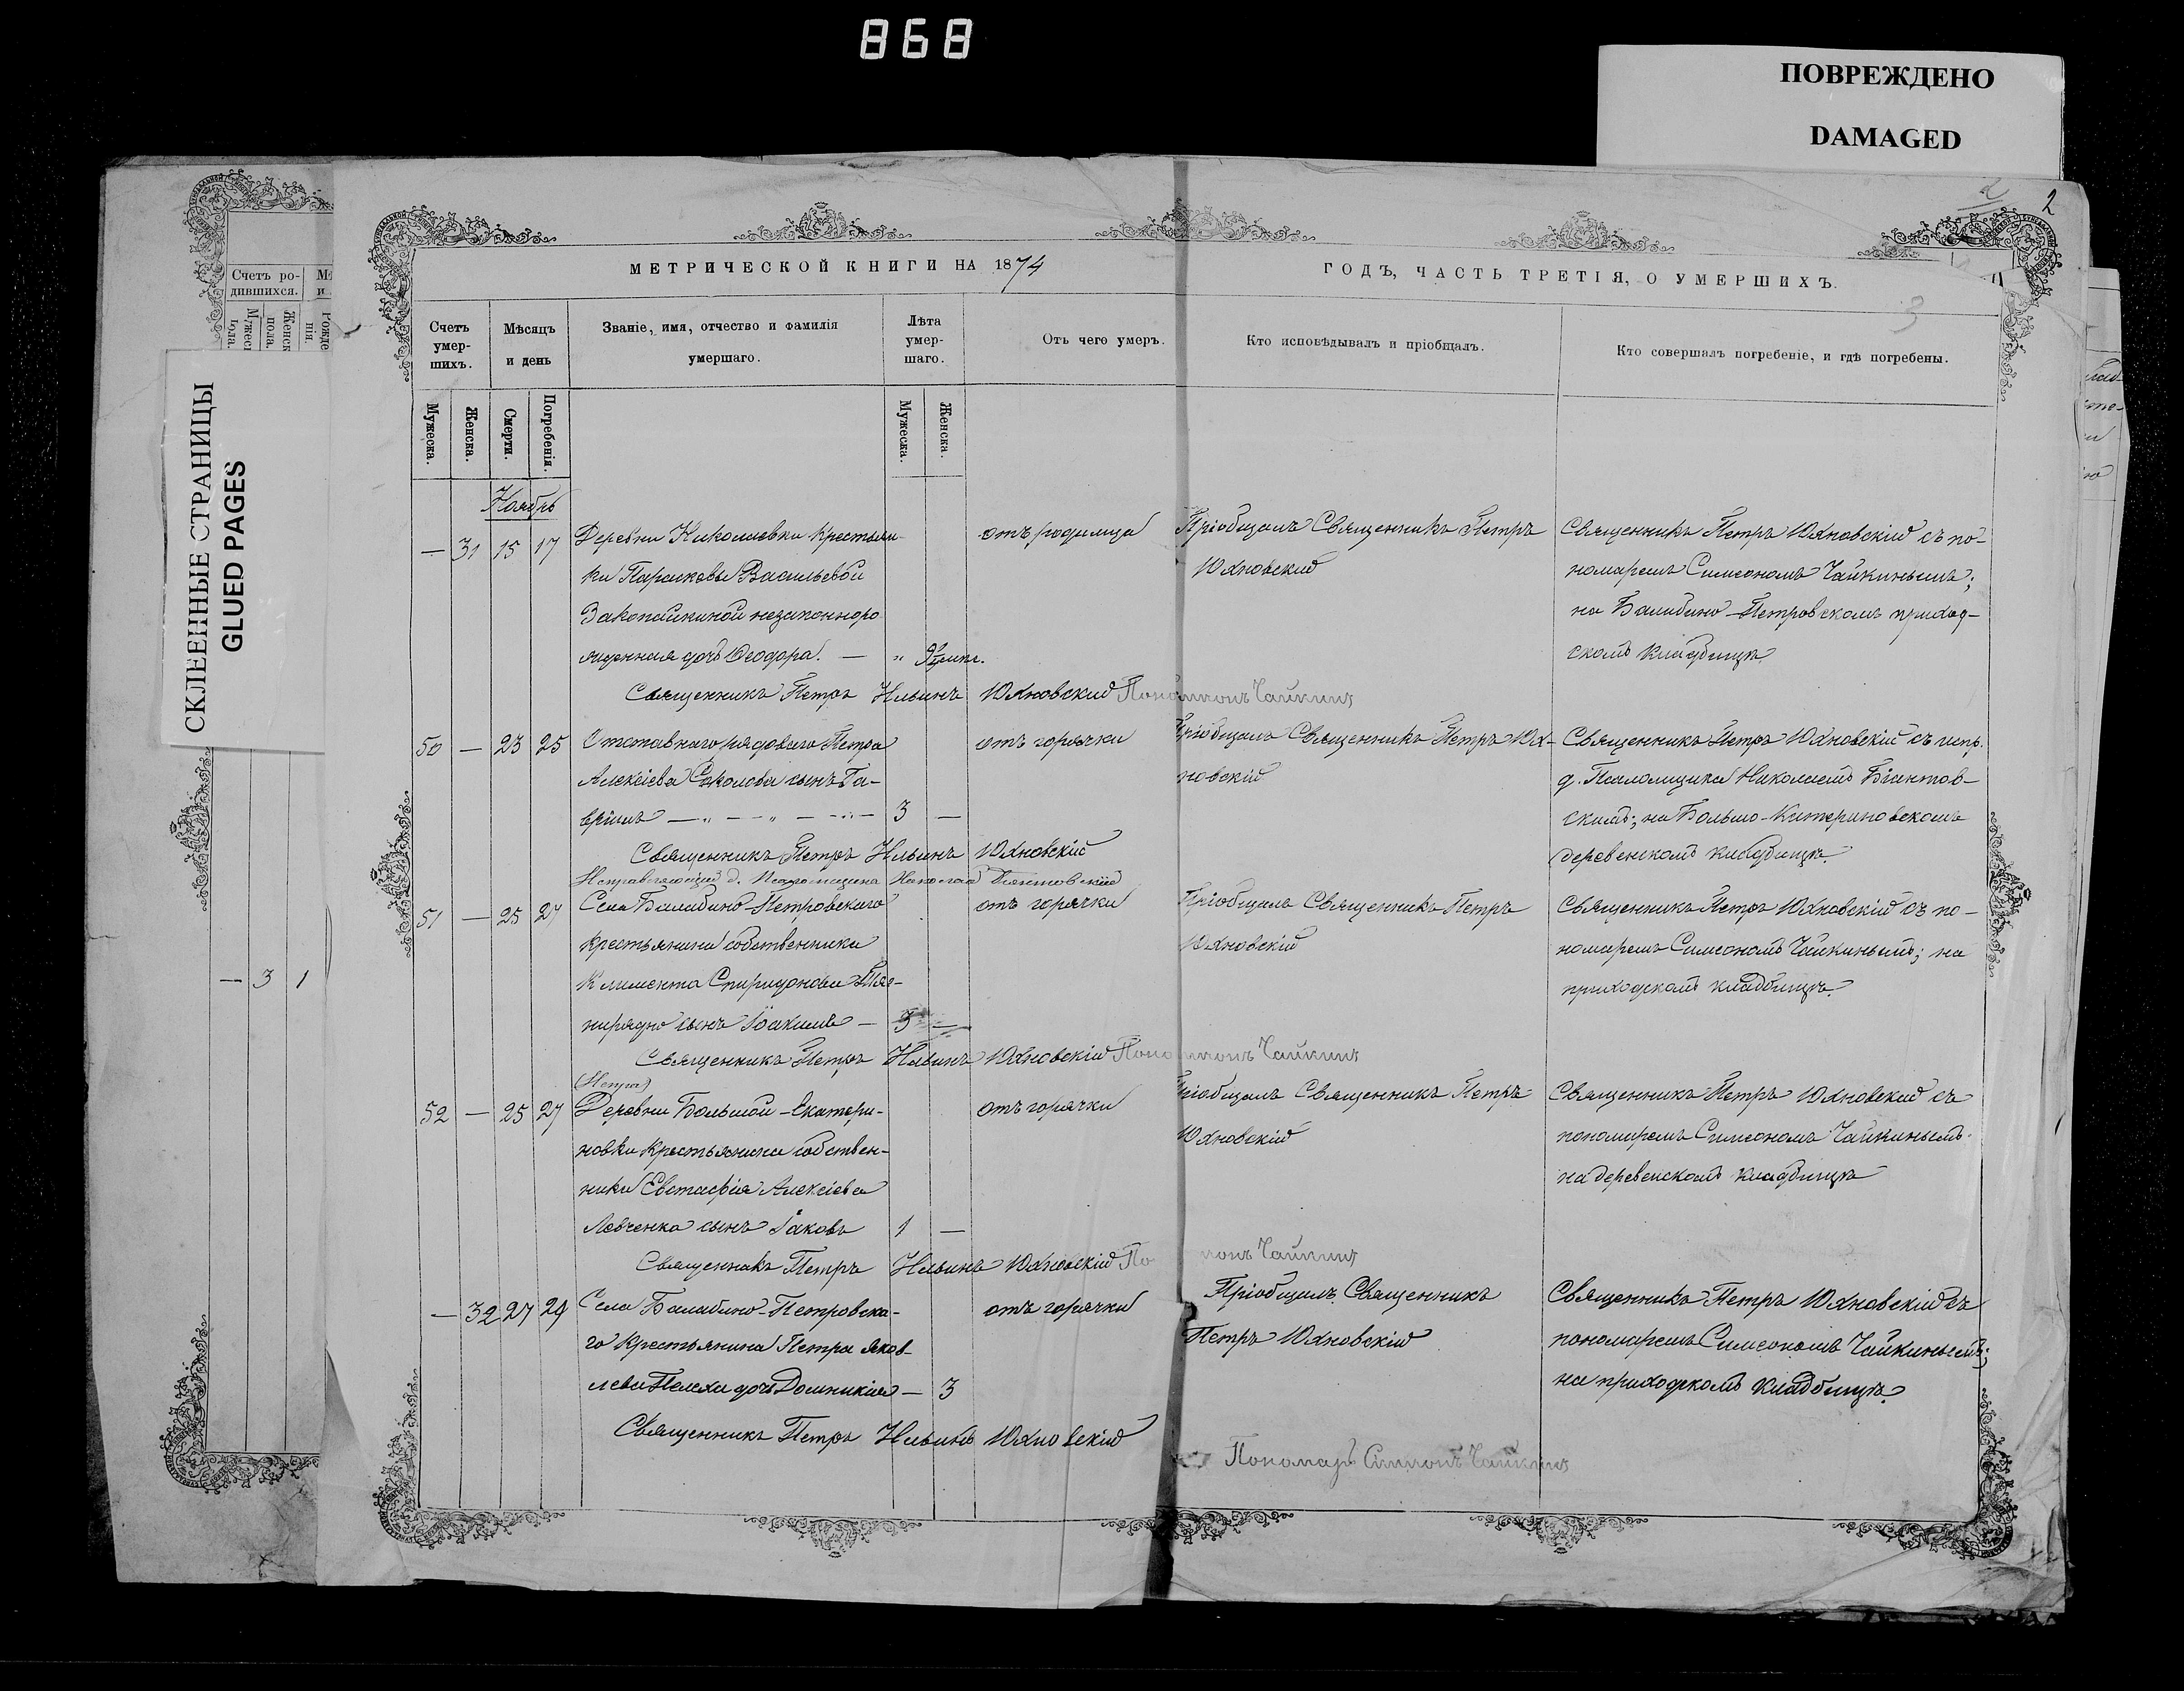 868
ПОВРЕЖДЕНО
DAMAGED
2
СКЛЕЕННЫЕ СТРАНИЦЫ
GLUED PAGES
Счетъ ро-
дившихся.
Мужеск
пола.
Женск
пола.
Рожде
нія
— 3 1
МЕТРИЧЕСКОЙ КНИГИ НА 1874
ГОДЪ, ЧАСТЬ ТРЕТІЯ, О УМЕРШИХЪ.
3
Счетъ
умер-
шихъ.
Мѣсяцъ
и день
Званіе, имя, отчество и фамилія
умершаго.
Лѣта
умер-
шаго.
Отъ чего умеръ.
Кто исповѣдывалъ и пріобщалъ.
Кто совершалъ погребеніе, и гдѣ погребены.
Мужеска.
Женска.
Смерти.
Погребенія.
Мужеска.
Женска.
Ноябрь
— 31 15 17
Деревни Николаевки крестьян-
ки Парасковьи Васильевой
незаконноро
жденная дочь Ѳеодора. —
отъ родимца
Пріобщалъ Священникъ Петръ
Юхновскій
Священникъ Петръ Юхновскій съ по-
номаремъ Симеономъ Чайкинымъ;
на Балабино-Петровскомъ приход-
скомъ кладбищѣ
Священникъ Петръ Ильинъ Юхновскій Чайкинъ
50 — 23 25
Отставнаго рядоваго Петра
Алексіева Соколова сынъ Га-
вріилъ — 3 —
отъ горячки
Пріобщалъ Священникъ Петръ Юх-
новскій
Священникъ Петръ Юхновскій съ испр.
д. Псаломщика Николаемъ
скимъ; на Больше-Катериновскомъ
деревенскомъ кладбищѣ.
Священникъ Петръ Ильинъ Юхновскій
Исправляющій д. Псаломщика Николай
51 — 25 27
Села Балабино-Петровскаго
крестьянина собственника
Климента Спиридонова
сынъ Іоакимъ — 3 —
отъ горячки
Пріобщалъ Священникъ Петръ
Юхновскій
Священникъ Петръ Юхновскій съ по-
номаремъ Симеономъ Чайкинымъ; на
приходскомъ кладбищѣ.
Священникъ Петръ Ильинъ Юхновскій Чайкинъ
52 — 25 27
Деревни Большой-Екатери-
новки крестьянина собствен-
ника Евстафія Алексіева
Левченка сынъ Іаковъ 1 —
отъ горячки
Пріобщалъ Священникъ Петръ
Юхновскій
Священникъ Петръ Юхновскій съ
пономаремъ Симеономъ Чайкинымъ
на деревенскомъ кладбищѣ
Священникъ Петръ Ильинъ Юхновскій Чайкинъ
— 32 27 29
Села Балабино-Петровска-
го крестьянина Петра Яков-
лева дочь Домникія — 3
отъ горячки
Пріобщилъ Священникъ
Петръ Юхновскій
Священникъ Петръ Юхновскій съ
пономаремъ Симеономъ Чайкинымъ;
на приходскомъ кладбищѣ.
Священникъ Петръ Ильинъ Юхновскій
Пономарь Симеонъ Чайкинъ